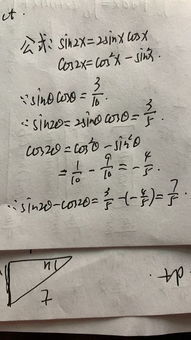 公式: sin2x=2sinxcosx
cos2x=cos²x-sin²x
∵sinθcosθ=3/10
∴sin2θ=2sinθcosθ=3/5
cos2θ=cos²θ-sin²θ
=1/10-9/10=-4/5
∴sin2θ-cos2θ=3/5-(-4/5)=7/5